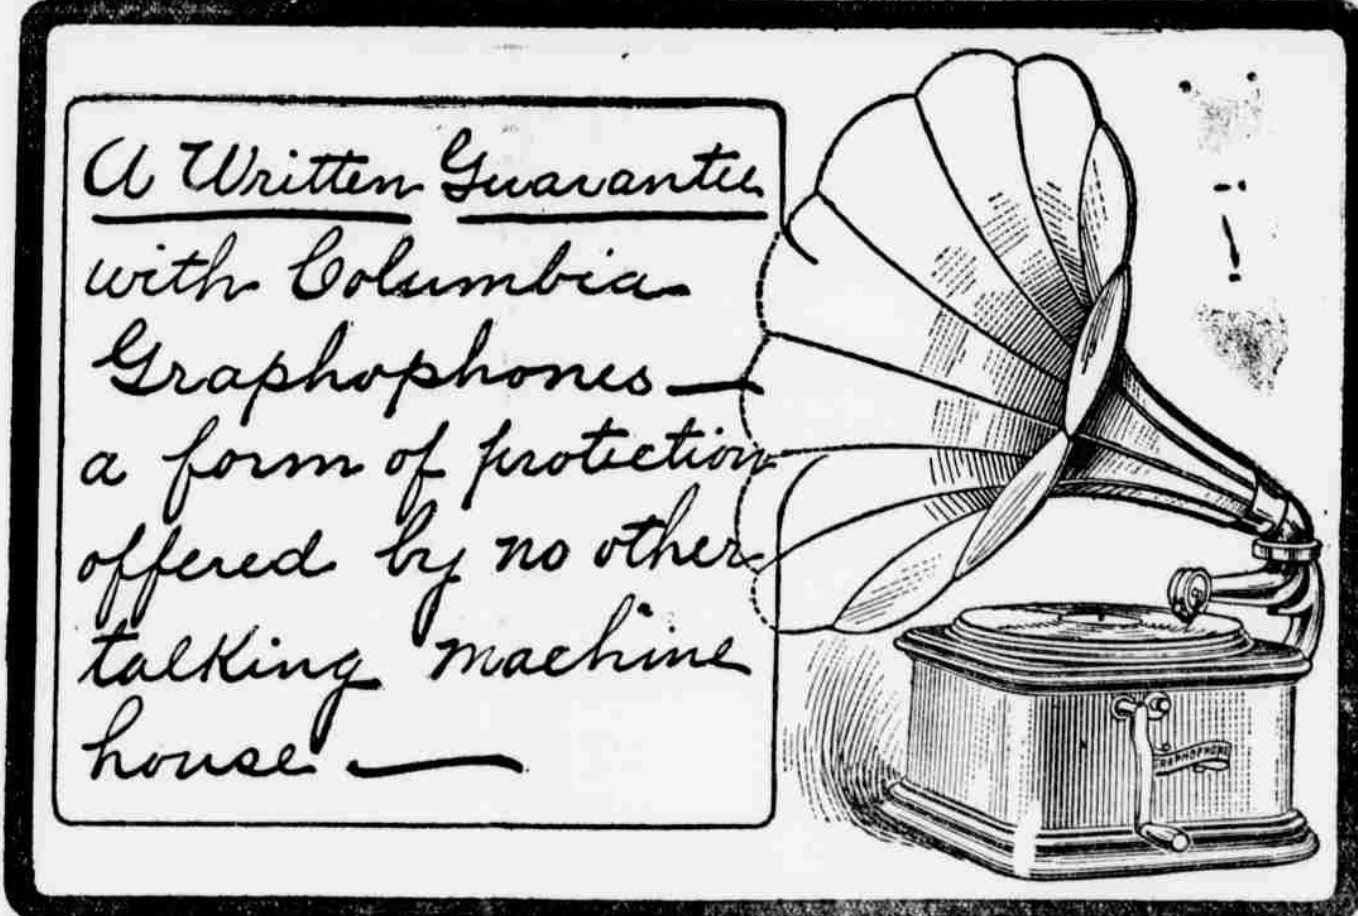 A Written Guarantee
with Columbia
Graphophones —
a form of protection
offered by no other
talking machine
house —
GRAPHOPHONE